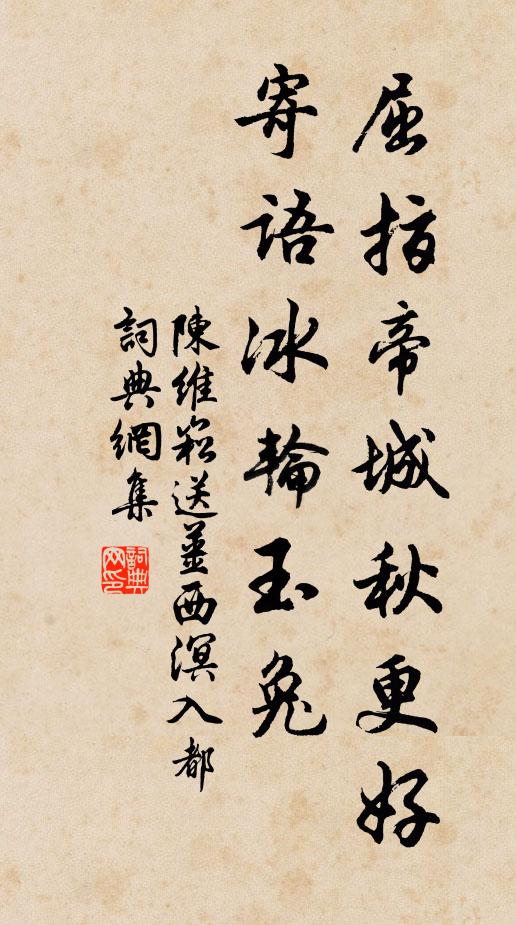 屈指帝城秋更好
寄語冰輪玉兔
陳維崧送姜西溟入都
詞典網集
詞典网印